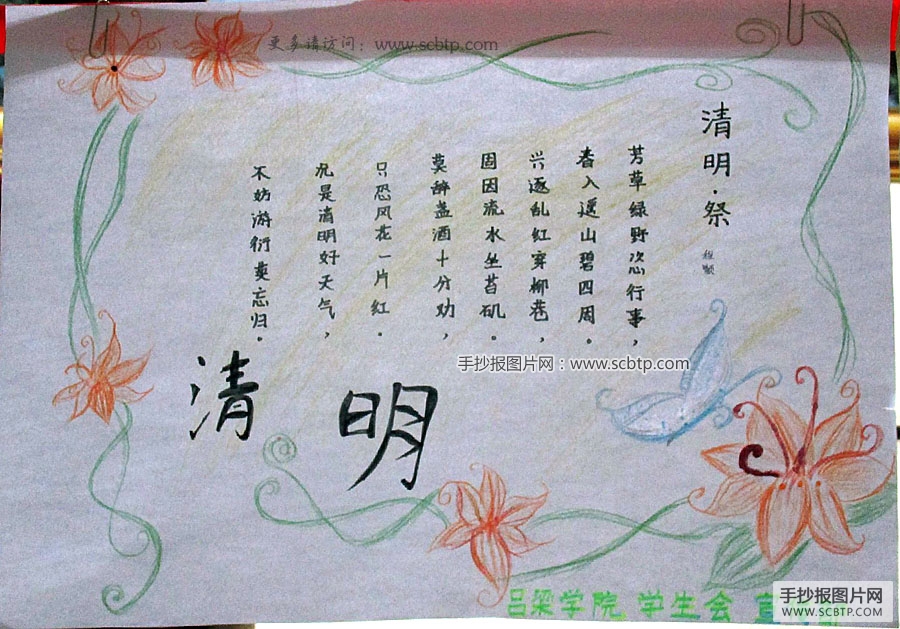 更多请访问：www.scbtp.com
清明·祭
程颢
芳草绿野恣行事，
春入遥山碧四周。
兴逐乱红穿柳巷，
固因流水坐苔矶。
莫辞盏酒十分劝，
只恐风花一片红.
况是清明好天气，
不妨游衍莫忘归.
手抄报图片网：www.scbtp.com
清明
吕梁学院 学生会 宣
手抄报图片网
WWW.SCBTP.COM